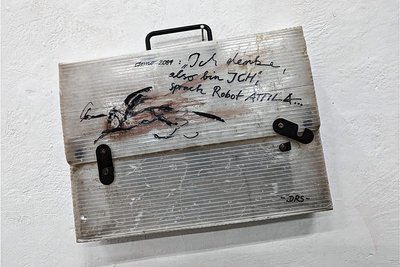 anno 2089: "Ich denke,
also bin ICH",
sprach Robot ATTILA...
-DRS-